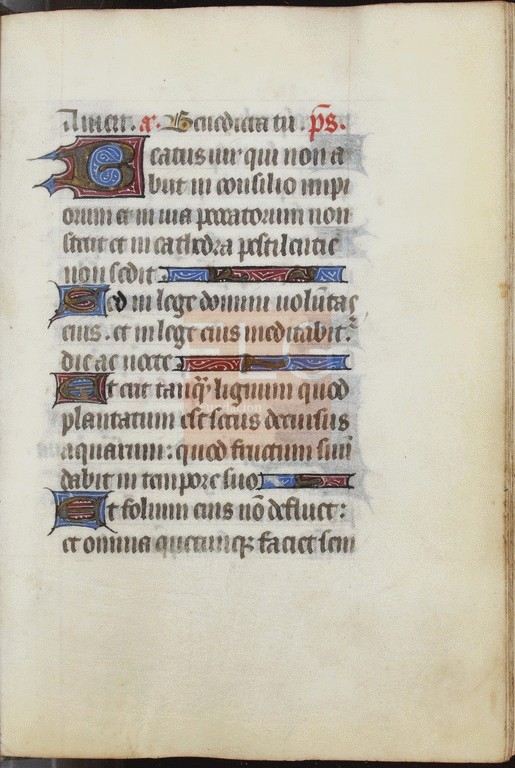 Amen. a. Benedicta tu. ps.
Beatus uir qui non a
biit in consilio impi
orum et in uia peccatorum non
stetit et in cathedra pestilentie
non sedit
Sed in lege domini uoluntas
eius. et in lege eius meditabit.
die ac nocte
Et erit tanqȝ lignum quod
plantatum est secus decursus
aquarum: quod fructum suū
dabit in tempore suo
Et folium eius nō defluet:
et omnia quecunqȝ faciet sem